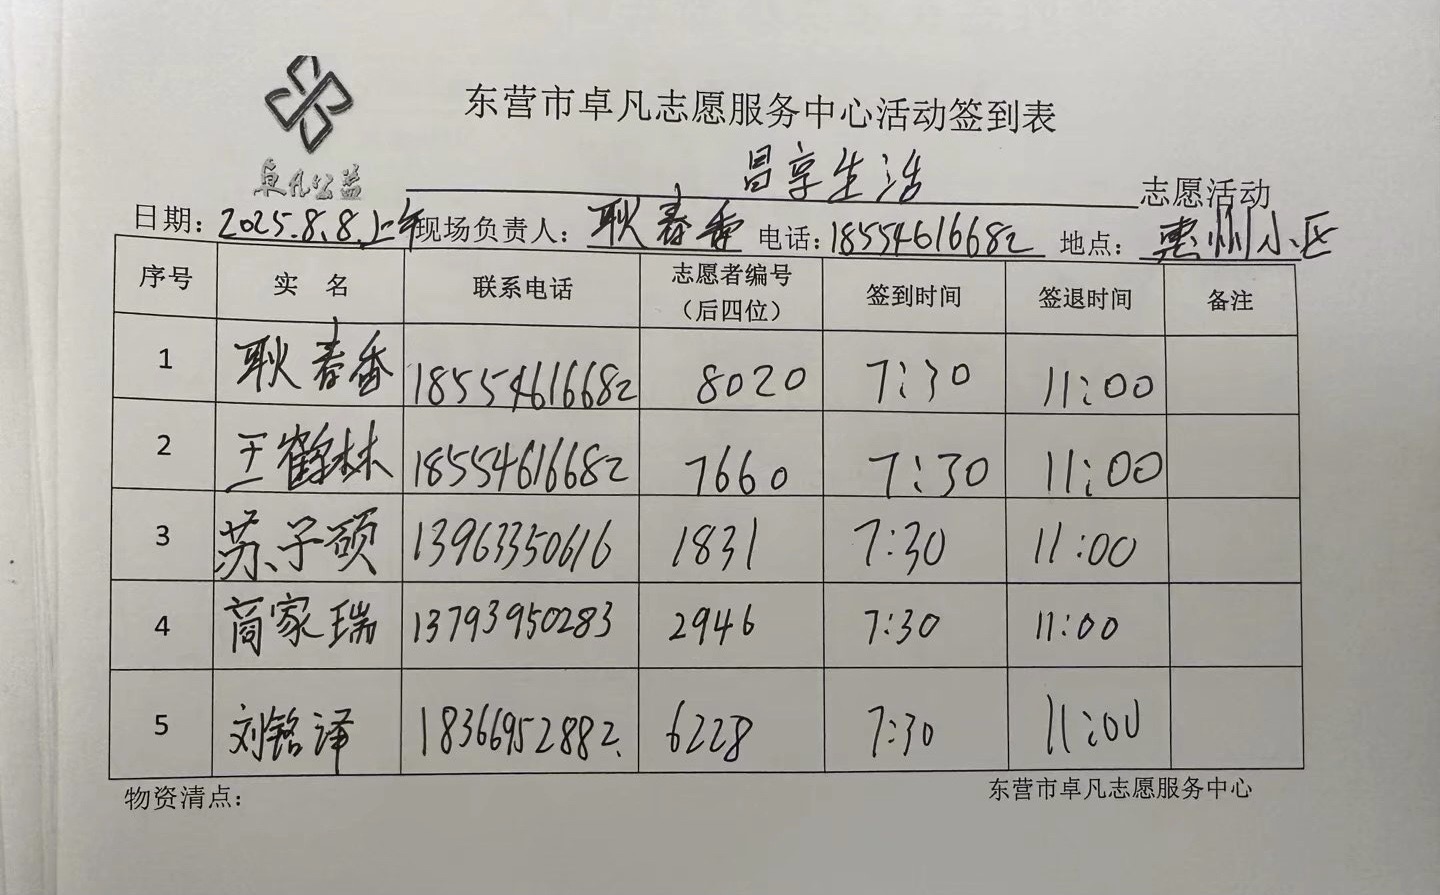 东营市卓凡志愿服务中心活动签到表
卓凡公益
昌享生活 志愿活动
日期：2025.8.8.上午 现场负责人：耿春香 电话：18554616682 地点：惠州小区
序号 实 名 联系电话 志愿者编号（后四位） 签到时间 签退时间 备注
1 耿春香 18554616682 8020 7:30 11:00
2 王鹤林 18554616682 7660 7:30 11:00
3 苏子硕 13963350616 1831 7:30 11:00
4 商家瑞 13793950283 2946 7:30 11:00
5 刘铭译 18366952882. 6228 7:30 11:00
物资清点： 东营市卓凡志愿服务中心